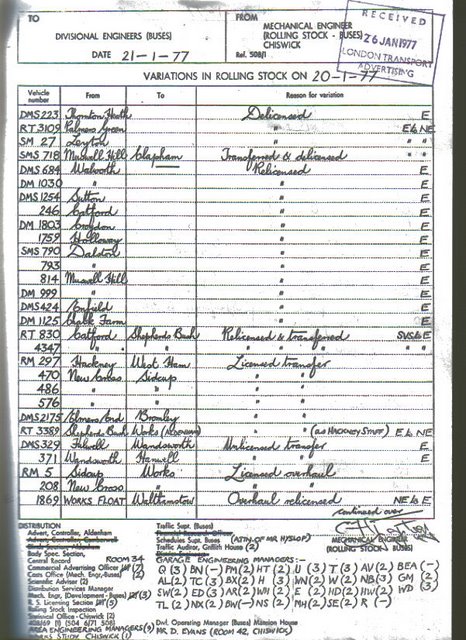 TO
DIVISIONAL ENGINEERS (BUSES)
DATE 21-1-77
FROM
MECHANICAL ENGINEER
(ROLLING STOCK - BUSES)
CHISWICK
Ref. 508/1
RECEIVED
26 JAN 1977
LONDON TRANSPORT
ADVERTISING
VARIATIONS IN ROLLING STOCK ON 20-1-77
Vehicle number From To Reason for variation
DMS 223 Thornton Heath Delicensed E
RT 3109 Palmers Green " E & NE
SM 27 Leyton " " "
SMS 718 Muswell Hill Clapham Transferred & delicensed " "
DMS 684 Walworth Relicensed E
DM 1030 " " E
DMS 1254 Sutton " E
246 Catford " E
DM 1803 Croydon " E
1759 Holloway " E
SMS 790 Dalston " E
793 " " E
814 Muswell Hill " E
DM 999 " " E
DMS 424 Enfield " E
DM 1125 Chalk Farm " E
RT 830 Catford Shepherds Bush Relicensed & transferred E
4347 " " " " " "
RM 297 Hackney West Ham Licensed transfer E
470 New Cross Sidcup " " E
486 " " " " E
576 " " " " E
DMS 2175 Elmers End Bromley " " E
RT 3389 Shepherds Bush Works (ALDENHAM) " " (as HACKNEY STAFF) E & NE
DMS 329 Fulwell Wandsworth Unlicensed transfer E
371 Wandsworth Hanwell " " E
RM 5 Sidcup Works Licensed overhaul
208 New Cross " "
1869 WORKS FLOAT Walthamstow Overhaul relicensed NE & E
continued over
DISTRIBUTION
Advert. Controller, Aldenham
Advert. Controller, Camberwell
Body Spec. Section
Central Record ROOM 34
Commercial Advertising Officer (7)
Costs Office (Mech. Engr.-Buses) (2)
Scientific Adviser (2)
Distribution Services Manager
Mech. Engr. (Development - Buses) (3)
R. S. Licensing Section (5)
Rolling Stock Inspection
Statistical Office - Chiswick (2)
AREA ENGINEERING MANAGERS
Traffic Supt. (Buses)
Schedules Supt. (Buses) (ATTN. OF MR HYSLOP)
Traffic Auditor, Griffith House (2)
MECHANICAL ENGINEER
(ROLLING STOCK - BUSES)
GARAGE ENGINEERING MANAGERS:-
G (3) BN (-) PM (2) HT (2) U (3) T (3) AV (2) BEA (-)
AL (2) TC (3) BX (2) H (3) WN (2) W (2) NB (3) GM (2)
SW (2) ED (3) AR (2) WH (2) E (2) HD (2) HW (2) WD (3)
TL (2) NX (2) BW (-) NS (2) MH (2) SE (2) R (-)
Dvl. Operating Manager (Buses) Mansion House
Mr. D. EVANS (ROOM 42, CHISWICK)